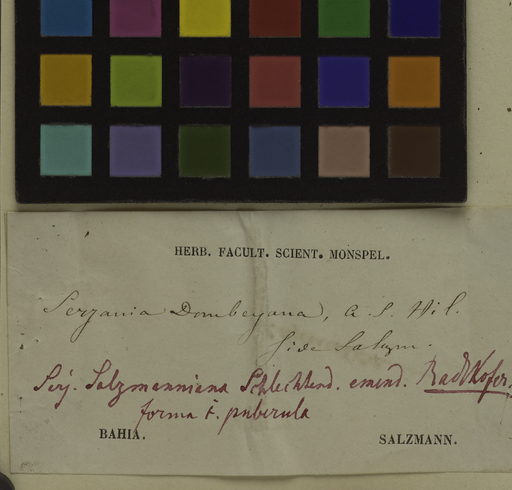 HERB. FACULT. SCIENT. MONSPEL.
Serjania Dombeyana, A. S. Hil.
fide Salzm.
Serj. Salzmanniana Schlechtend. emend. Radlkofer.
forma 1. puberula
BAHIA. SALZMANN.